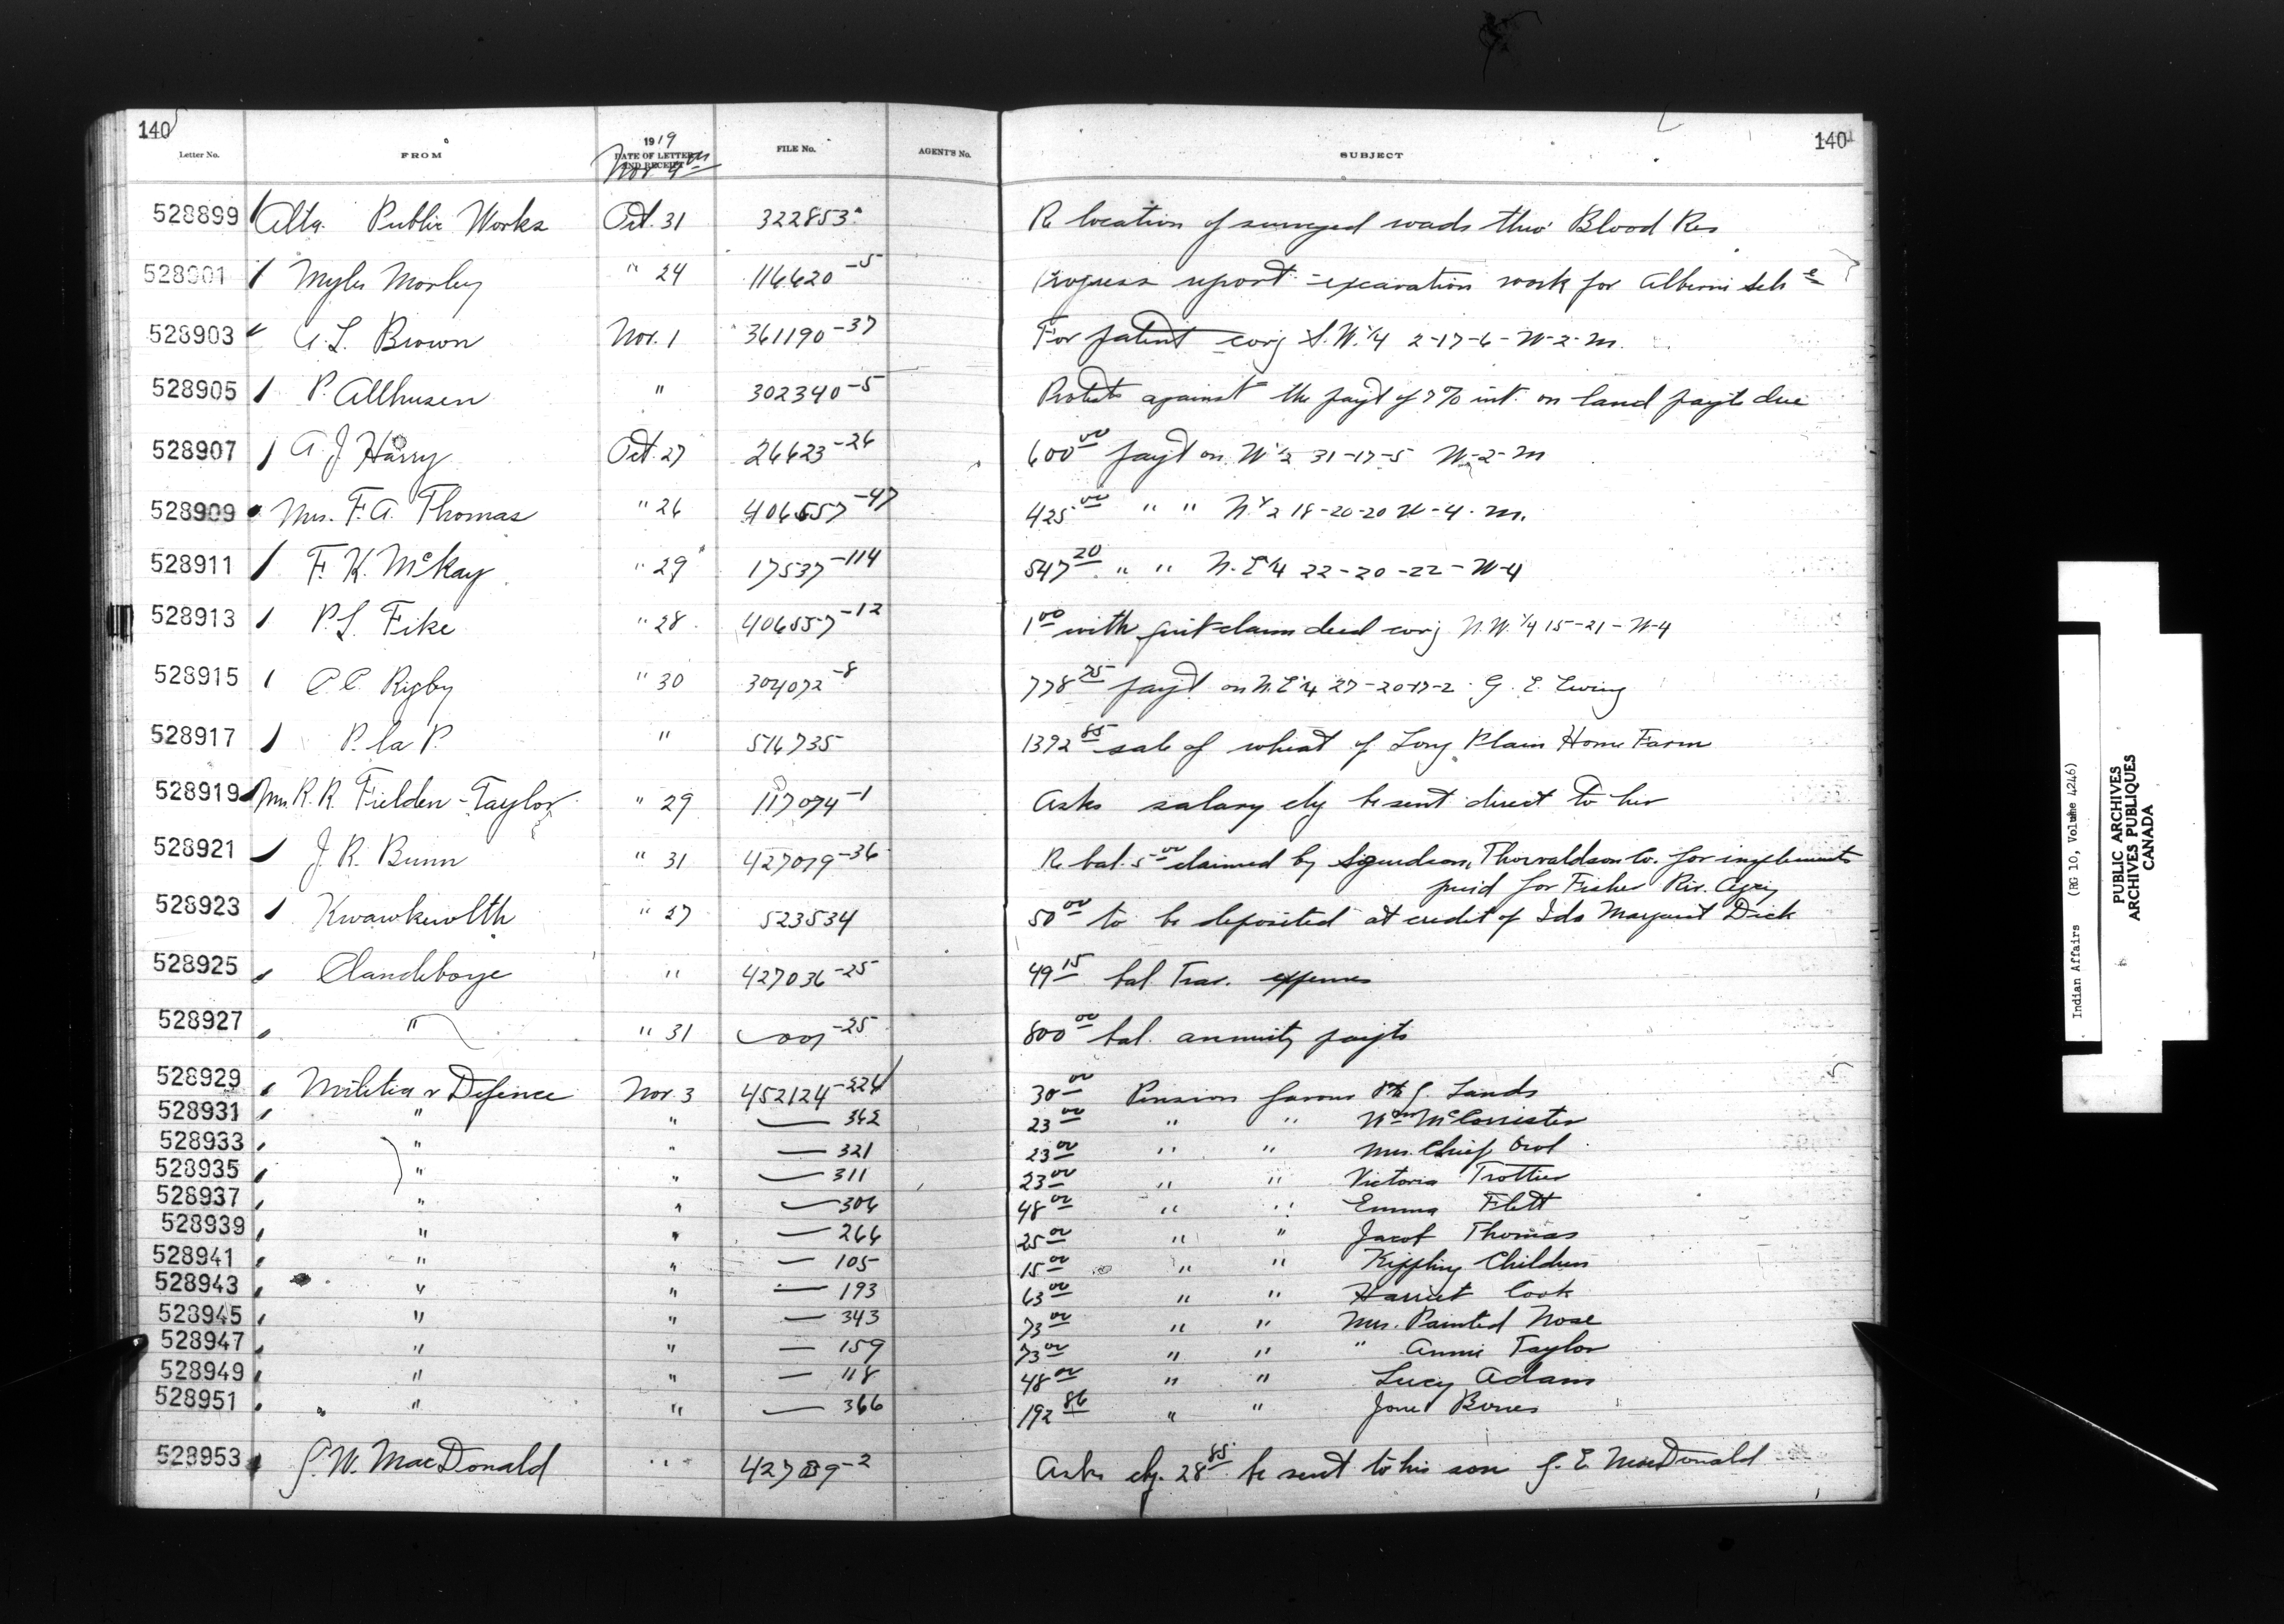 140 140
1919
Letter No. FROM DATE OF LETTER AND RECEIPT FILE No. AGENT'S No. SUBJECT
Nov 4th
528899 Alta. Public Works Oct. 31 322853 Re location of surveyed roads thro' Blood Res
528901 Myles Morley " 24 116620-5 Progress report - excavation work for Alberni Sch e
528903 A. L. Brown Nov. 1 361190-37 For patent covg S.W. 1/4 2-17-6-W-2-M.
528905 P. Allhusen " 302340-5 Protests against the payt of 7% int. on land payts due
528907 A. J. Harry Oct. 27 26623-26 600 00 payt on W 1/2 31-17-5 W-2-M
528909 Mrs. F. A. Thomas " 26 406557-47 425 00 " " N. 1/2 18-20-20 W-4-M.
528911 F. K. McKay " 29 17537-114 547 20 " " N.E 1/4 22-20-22-W-4
528913 P. L. Fike " 28 406557-12 1 00 with quit claim deed covg N.W. 1/4 15-21-W-4
528915 Rigby " 30 304072-8 778 25 payt on N.E 1/4 27-20-17-2 G. E. Ewing
528917 P. la P. " 516735 1392 85 sale of wheat of Long Plain Home Farm
528919 Mrs R. R. Fielden-Taylor " 29 117074-1 Asks salary chq be sent direct to her
528921 J. R. Bunn " 31 427019-36 Re bal. 5 00 claimed by Sigurdson, Thorvaldson Co. for implements
paid for Fisher Riv. Agcy
528923 Kwawkewlth " 27 523534 50 00 to be deposited at credit of Ida Margaret Dick
528925 Clandeboye " 427036-25 49 15 bal. Trav. expenses
528927 " " 31 -25 800 00 bal. annuity payts
528929 Militia & Defence Nov. 3 452124-224 30 00 Pension favour Lands
528931 " " — 362 23 00 " " Wm McCorrister
528933 " " — 321 23 00 " " Mrs. Chief Owl
528935 " " — 311 23 00 " " Victoria Trottier
528937 " " — 306 48 00 " " Emma Flett
528939 " " — 266 25 00 " " Jacob Thomas
528941 " " — 105 15 00 " " Kippling Children
528943 " " — 193 63 00 " " Harriet Cook
528945 " " — 343 73 00 " " Mrs. Painted Nose
528947 " " — 159 73 00 " " " Annie Taylor
528949 " " — 118 48 00 " " Lucy Adams
528951 " " — 366 192 86 " "
528953 G. W. MacDonald " -2 Asks chq. 28 85 be sent to his son G. E. MacDonald
Indian Affairs (RG 10, Volume 4246)
PUBLIC ARCHIVES
ARCHIVES PUBLIQUES
CANADA